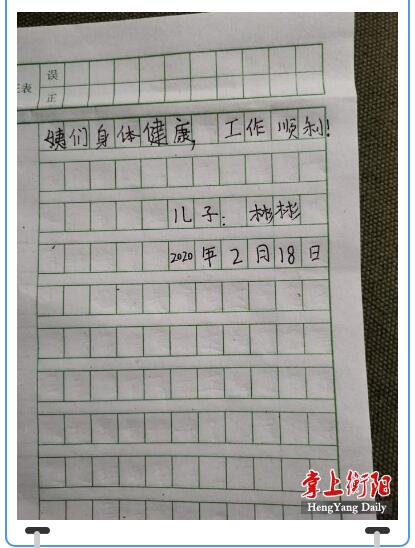 误
正表 正
姨们身体健康,工作顺利!
儿子:彬彬
2020年2月18日
掌上衡阳
HengYang Daily